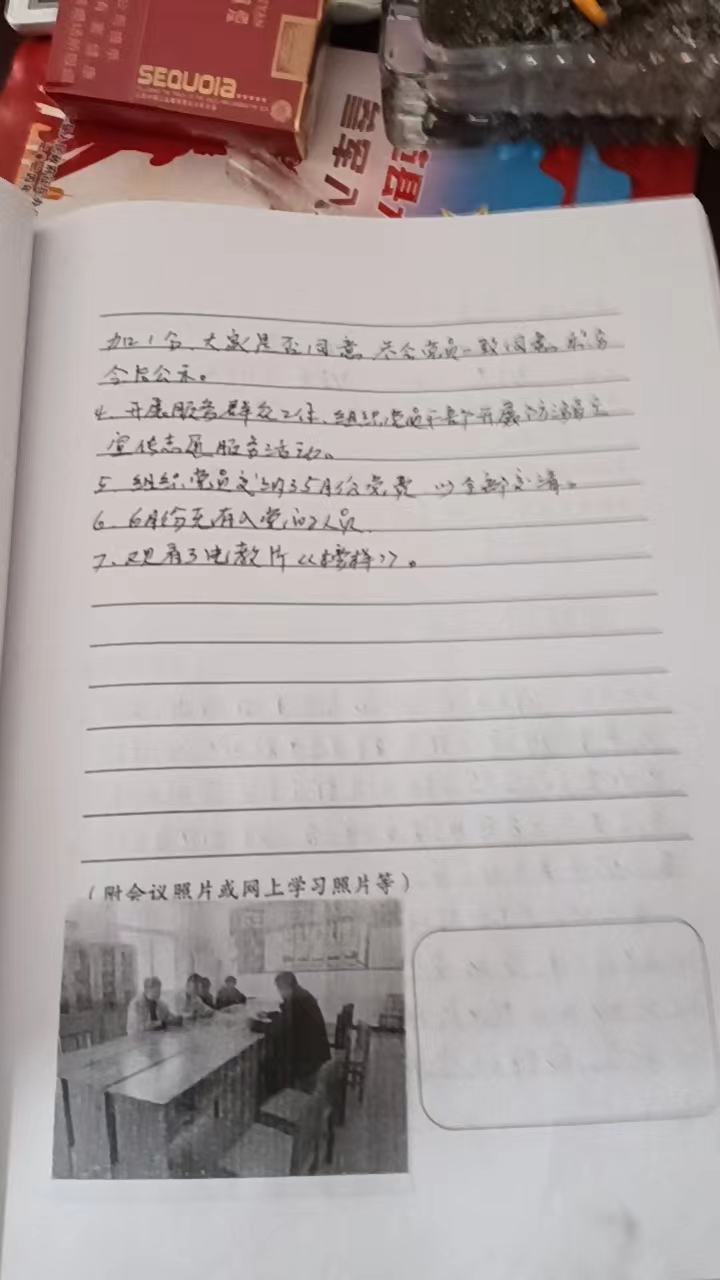 SEQUOIA
加1分、大家是否同意，参会党员一致同意，
会后公示。
4、开展服务群众工作、组织党员干部开展
宣传志愿服务活动。
5、组织党员交纳 5月份党费 全部交清。
6、6月份无有入党的人员
7、观看了电教片《榜样》。
（附会议照片或网上学习照片等）